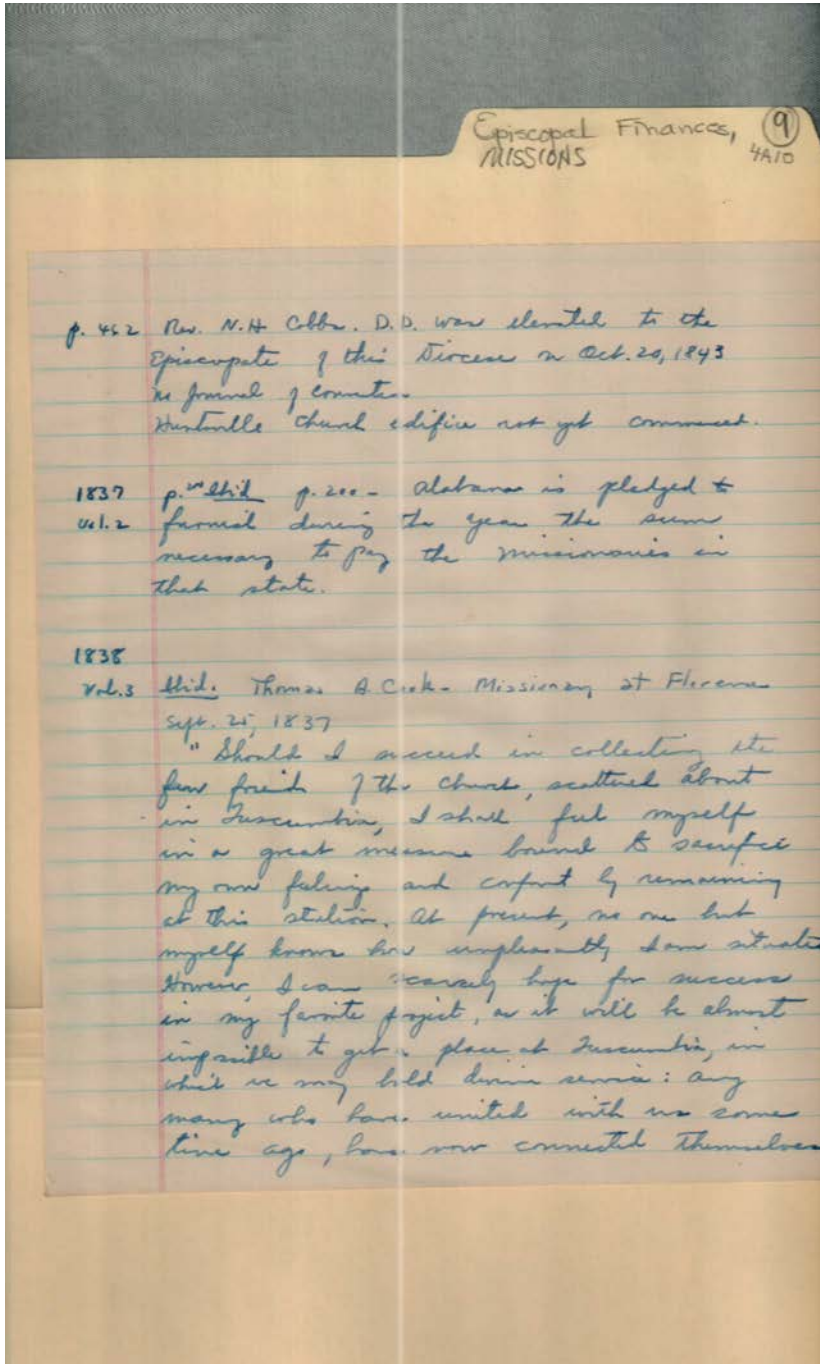 Episcopal Finances, 9
MISSIONS 4A10
p. 452 Rev. N.H Cobbs. D.D. was elevated to the
Episcopate of this Diocese on Oct. 20, 1843
no Journal of
Huntsville church edifice not yet commenced.
1837 Ibid p. 200 - Alabama is pledged to
Vol. 2 furnish during the year the sum
necessary to pay the missionaries in
that state.
1838
Vol. 3 Ibid. Thomas A. Cook - Missionary at Florence
Sept. 25, 1837
"Should I succeed in collecting the
few friends of the church, scattered about
in Tuscumbia, I shall feel myself
in a great measure bound to sacrifice
my own feelings and comfort by remaining
at this station. At present, no one but
myself knows how unpleasantly I am situated
However, I can scarcely hope for success
in my favorite project, as it will be almost
impossible to get a place at Tuscumbia, in
which we may hold divine service: any
many who have united with us some
time ago, have now connected themselves